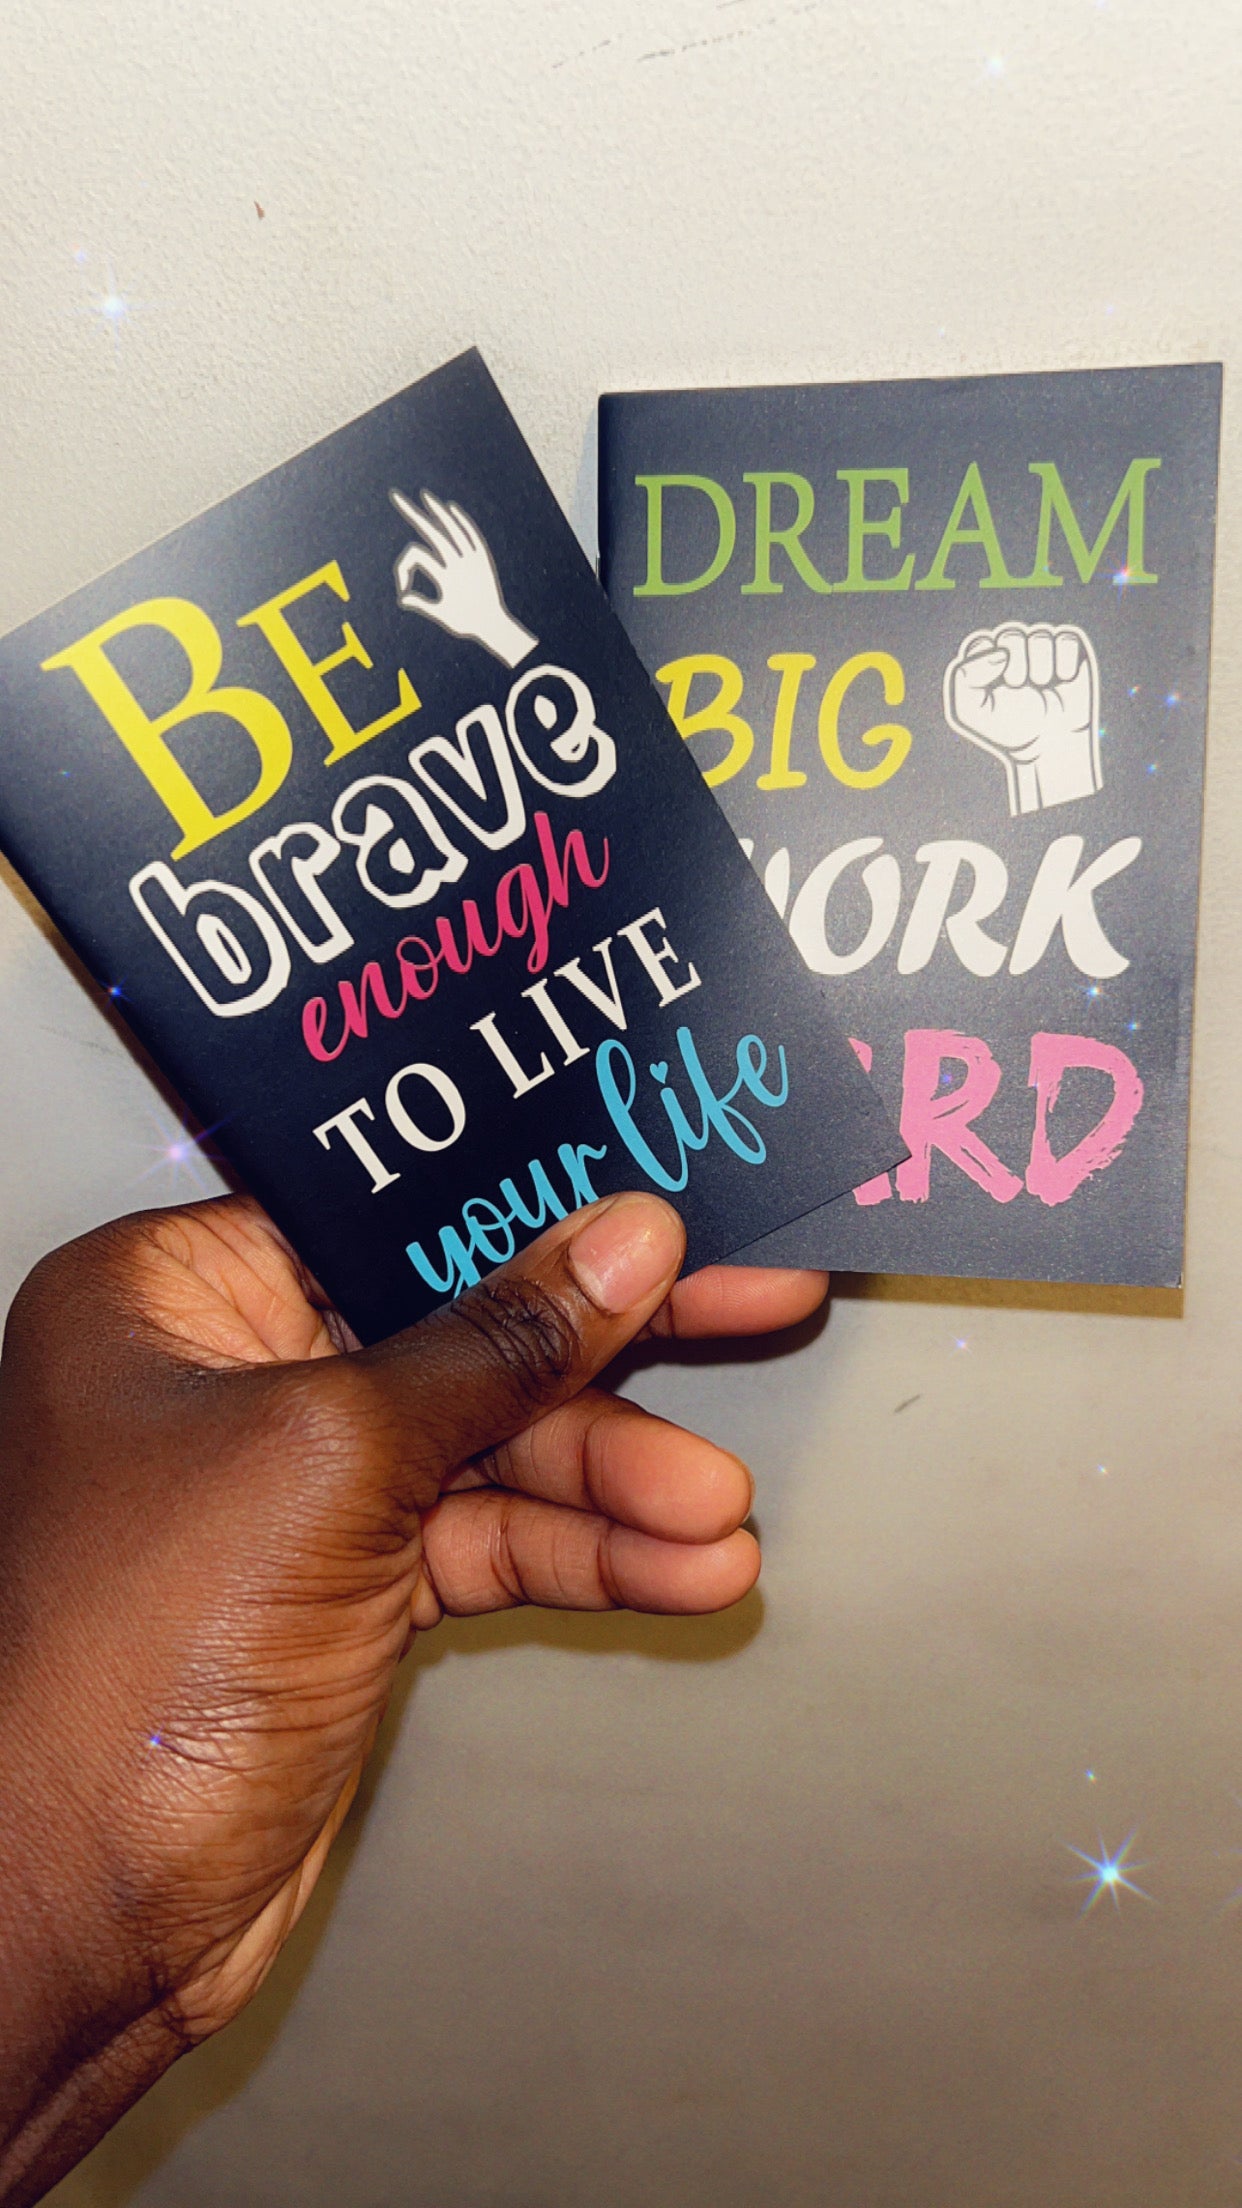 BE
brave
enough
TO LIVE
your life
DREAM
BIG
WORK
HARD